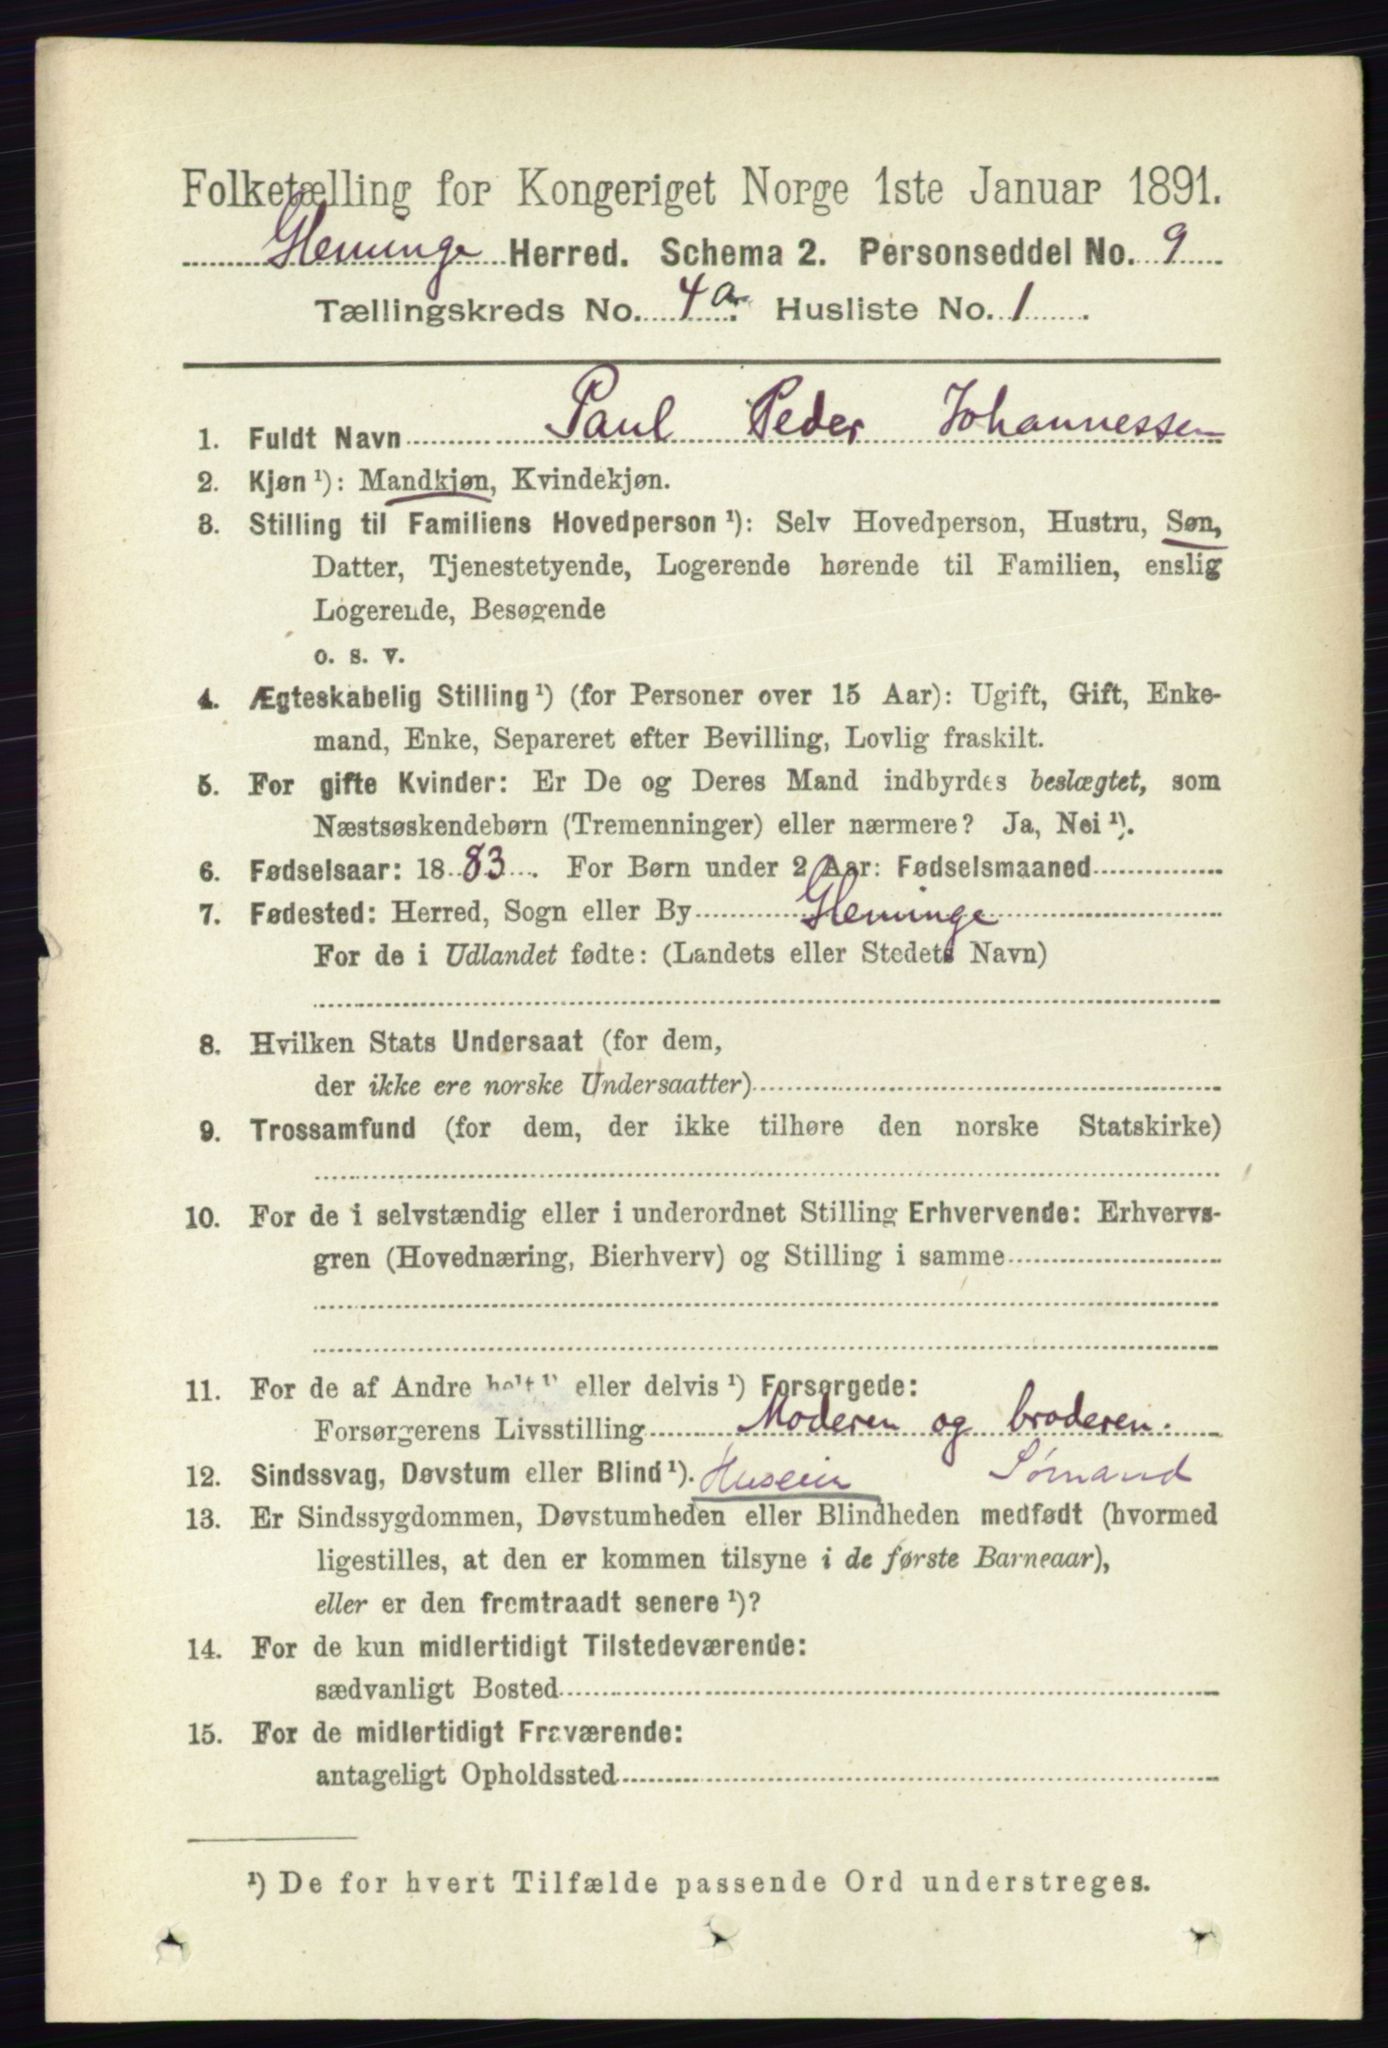 Folketælling for Kongeriget Norge 1ste Januar 1891.
Glemminge Herred. Schema 2. Personseddel No. 9
Tællingskreds No. 4a. Husliste No. 1.
1. Fuldt Navn Paul Peder Johannessen
2. Kjøn ¹): Mandkjøn, Kvindekjøn.
3. Stilling til Familiens Hovedperson ¹): Selv Hovedperson, Hustru, Søn,
Datter, Tjenestetyende, Logerende hørende til Familien, enslig
Logerende, Besøgende
o. s. v.
4. Ægteskabelig Stilling ¹) (for Personer over 15 Aar): Ugift, Gift, Enke-
mand, Enke, Separeret efter Bevilling, Lovlig fraskilt.
5. For gifte Kvinder: Er De og Deres Mand indbyrdes beslægtet, som
Næstsøskendebørn (Tremenninger) eller nærmere? Ja, Nei ¹).
6. Fødselsaar: 1883. For Børn under 2 Aar: Fødselsmaaned
7. Fødested: Herred, Sogn eller By Glemminge
For de i Udlandet fødte: (Landets eller Stedets Navn)
8. Hvilken Stats Undersaat (for dem,
der ikke ere norske Undersaatter)
9. Trossamfund (for dem, der ikke tilhøre den norske Statskirke)
10. For de i selvstændig eller i underordnet Stilling Erhvervende: Erhvervs-
gren (Hovednæring, Bierhverv) og Stilling i samme
11. For de af Andre helt ¹) eller delvis ¹) Forsørgede:
Forsørgerens Livsstilling Moderen og broderen.
12. Sindssvag, Døvstum eller Blind ¹). Huseier Sømand
13. Er Sindssygdommen, Døvstumheden eller Blindheden medfødt (hvormed
ligestilles, at den er kommen tilsyne i de første Barneaar),
eller er den fremtraadt senere ¹)?
14. For de kun midlertidigt Tilstedeværende:
sædvanligt Bosted
15. For de midlertidigt Fraværende:
antageligt Opholdssted
¹) De for hvert Tilfælde passende Ord understreges.